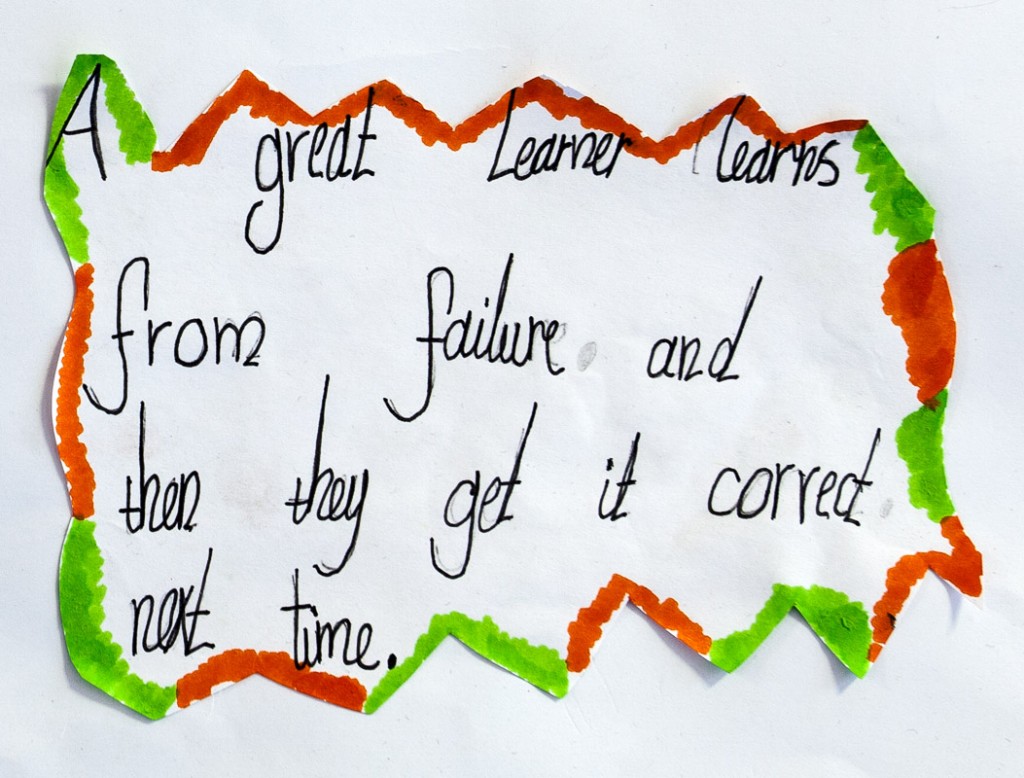 A great Learner learns
from failure. and
then they get it correct
next time.